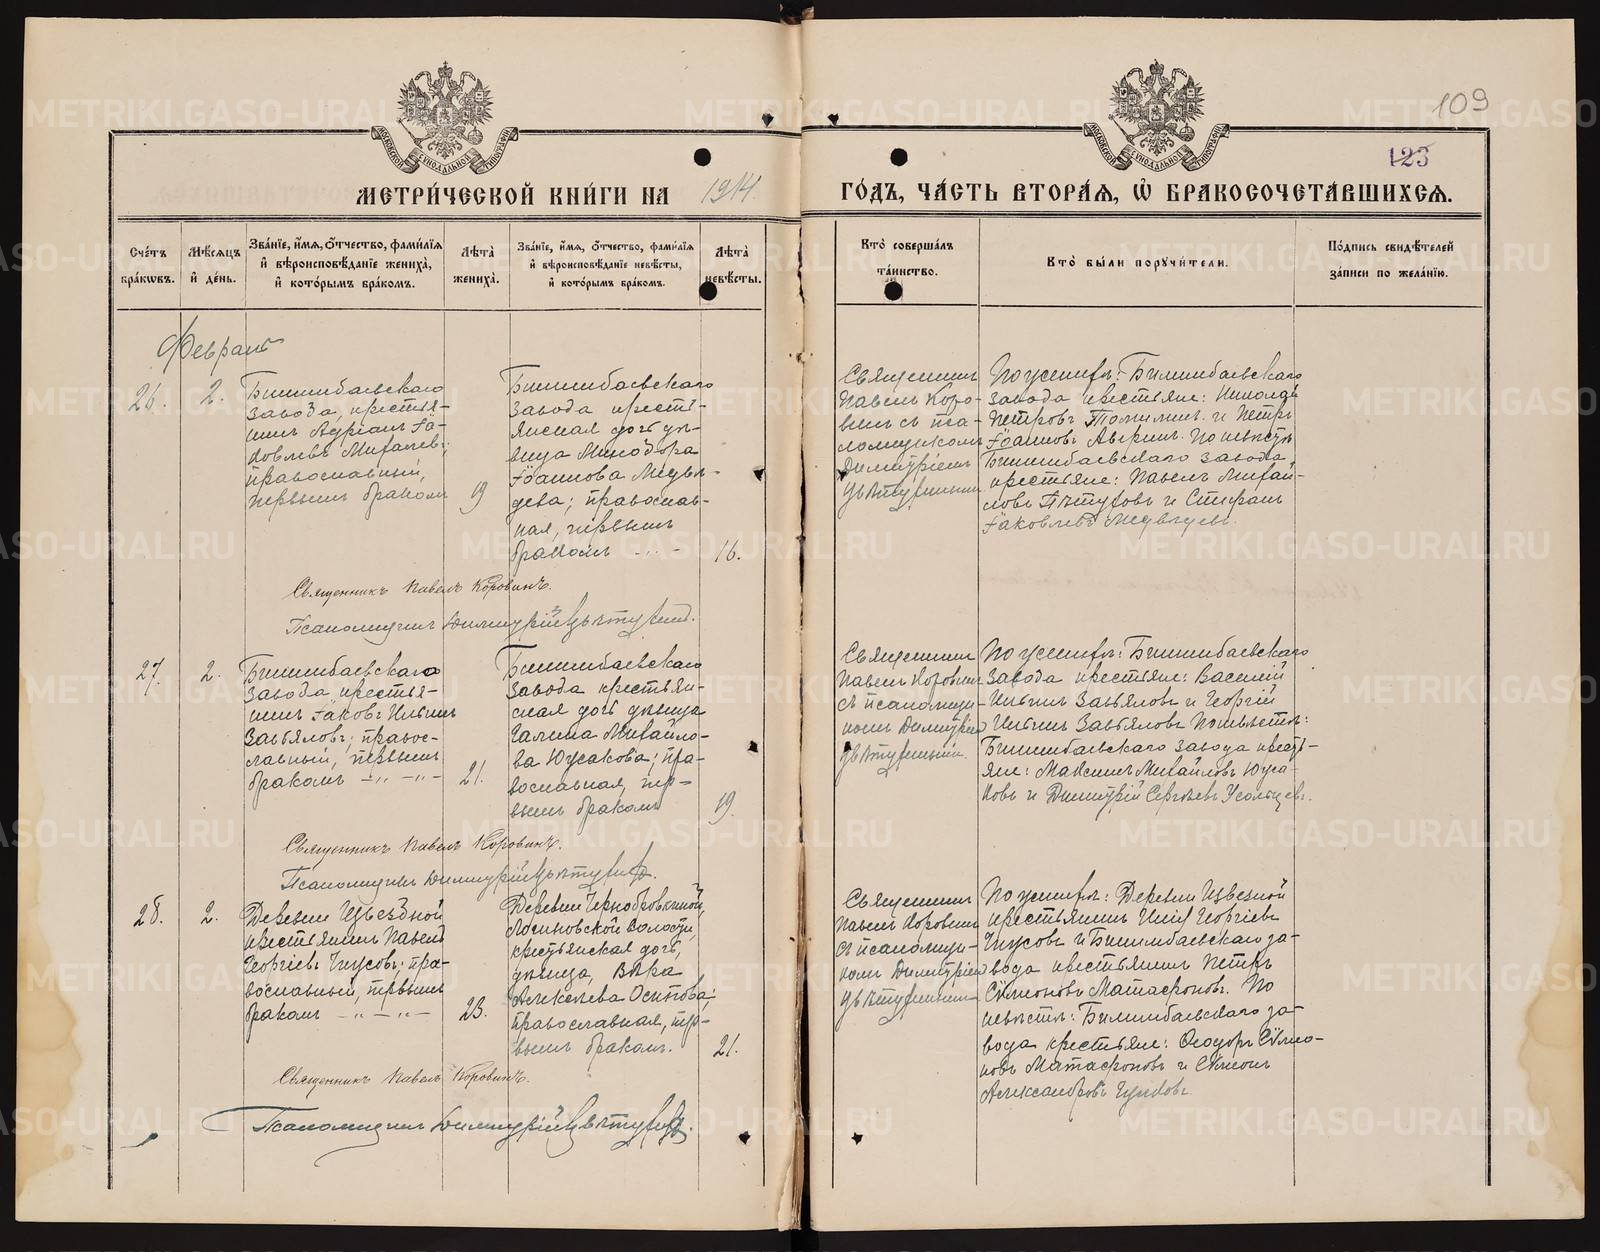 109
123
МОСКОВСКОЙ СУНОДАЛЬНОЙ ТИПОГРАФІИ
МОСКОВСКОЙ СУНОДАЛЬНОЙ ТИПОГРАФІИ
МЕТРИ́ЧЕСКОЙ КНИ́ГИ НА 1914
ГО́ДЪ, ЧА́СТЬ ВТОРА́Я, Ѡ҆ БРАКОСОЧЕТА́ВШИХСЯ.
Сче́тъ бра́кѡвъ.
Мѣ́сяцъ и҆ де́нь.
Зва́нїе, и҆́мя, ѻ҆́тчество, фами́лїя и҆ вѣроисповѣ́данїе жениха̀, и҆ кото́рымъ бра́комъ.
Лѣ́та жениха̀.
Зва́нїе, и҆́мя, ѻ҆́тчество, фами́лїя и҆ вѣроисповѣ́данїе невѣ́сты, и҆ кото́рымъ бра́комъ.
Лѣ́та невѣ́сты.
Кто̀ соверша́лъ та́инство.
Кто̀ бы́ли поручи́тели.
По́дпись свидѣ́телей за́писи по жела́нїю.
Февраль
26.
2.
Билимбаевскаго
завода, крестья-
нинъ Адріанъ Іа-
ковлевъ
православный,
первымъ бракомъ
19
Билимбаевскаго
завода кресть-
янская дочь дѣ-
вица Минодора
Іоаннова Медвѣ-
дева; православ-
ная, первымъ
бракомъ
16.
Священникъ
Павелъ Коро-
винъ съ пса-
ломщикомъ
Димитріемъ
По женихѣ: Билимбаевскаго
завода крестьяне: Николай
Петровъ Томилинъ и Петръ
Іоанновъ Аверинъ. По невѣстѣ
Билимбаевскаго завода,
крестьяне: Павелъ Михай-
ловъ и Стефанъ
Іаковлевъ Медвѣдевъ.
Священникъ Павелъ Коровинъ.
Псаломщикъ Димитрій
27.
2.
Билимбаевскаго
завода крестья-
нинъ Іаковъ Ильинъ
Завьяловъ; правос-
лавный, первымъ
бракомъ
21.
Билимбаевскаго
завода крестьян-
ская дочь дѣвица
Галина Михайло-
ва Юсакова; пра-
вославная, пер-
вымъ бракомъ
19.
Священникъ
Павелъ Коровинъ
съ псаломщи-
комъ Димитріемъ
По женихѣ: Билимбаевскаго
завода крестьяне: Василій
Ильинъ Завьяловъ и Георгій
Ильинъ Завьяловъ По невѣстѣ:
Билимбаевскаго завода кресть-
яне: Максимъ Михайловъ Юса-
ковъ и Димитрій Сергѣевъ Усольцевъ.
Священникъ Павелъ Коровинъ.
Псаломщикъ Димитрій
28.
2.
Деревни Извѣздной
крестьянинъ Павелъ
Георгіевъ Чусовъ; пра-
вославный, первымъ
бракомъ
23.
Деревни Чернобровкиной,
волости,
крестьянская дочь,
дѣвица, Вѣра
Алексѣева Осипова;
православная, пер-
вымъ бракомъ.
21.
Священникъ
Павелъ Коровинъ
съ псаломщи-
комъ Димитріемъ
По женихѣ: Деревни Извѣздной
крестьянинъ Георгіевъ
Чусовъ и Билимбаевскаго за-
вода крестьянинъ Петръ
Сѵмеоновъ Матафоновъ. По
невѣстѣ: Билимбаевскаго за-
вода крестьяне: Ѳеодоръ Сѵмео-
новъ Матафоновъ и Сѵмеонъ
Александровъ
Священникъ Павелъ Коровинъ.
Псаломщикъ Димитрій